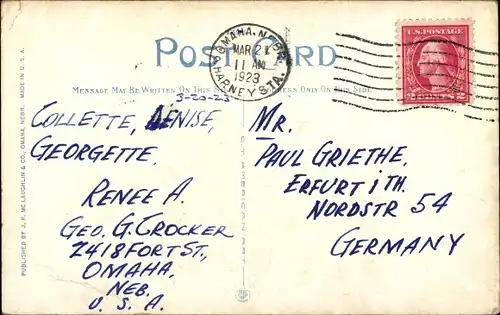 POST CARD
OMAHA, NEBR.
MAR 21
11 AM
1923
HARNEY STA.
U.S. POSTAGE
MESSAGE MAY BE WRITTEN ON THIS SIDE
ADDRESS ONLY ON THIS SIDE
3-20-23
COLLETTE, DENISE,
GEORGETTE.
RENEE A.
GEO. G. CROCKER
2418 FORT ST.,
OMAHA,
NEB.
U. S. A.
MR.
PAUL GRIETHE,
ERFURT i TH.
NORDSTR 54
GERMANY
PUBLISHED BY J. F. MCLAUGHLIN & CO., OMAHA, NEBR. MADE IN U. S. A.